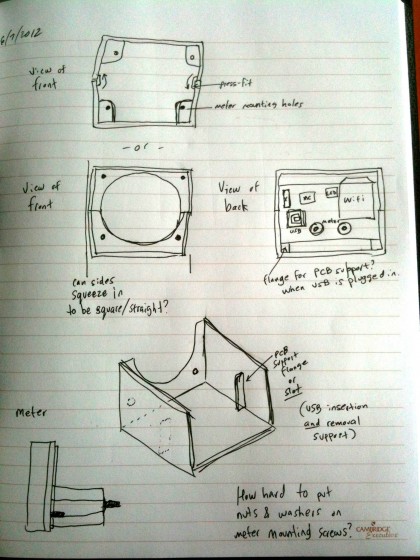 6/9/2012
view of
front
press-fit
meter mounting holes
- or -
view of
front
View of
back
WiFi
USB
meter
can sides
squeeze in
to be square/straight?
flange for PCB support?
when USB is plugged in.
PCB
support
flange
or
slot
(USB insertion
and removal
support)
meter
How hard to put
nuts & washers on
meter mounting screws?
CAMBRIDGE